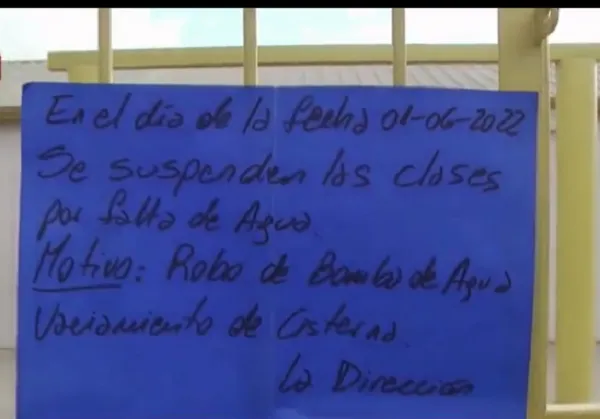 En el dia de la fecha 01-06-2022
Se suspenden las clases
por falta de Agua.
Motivo: Robo de Bomba de Agua
Vaciamiento de Cisterna.
La Direccion